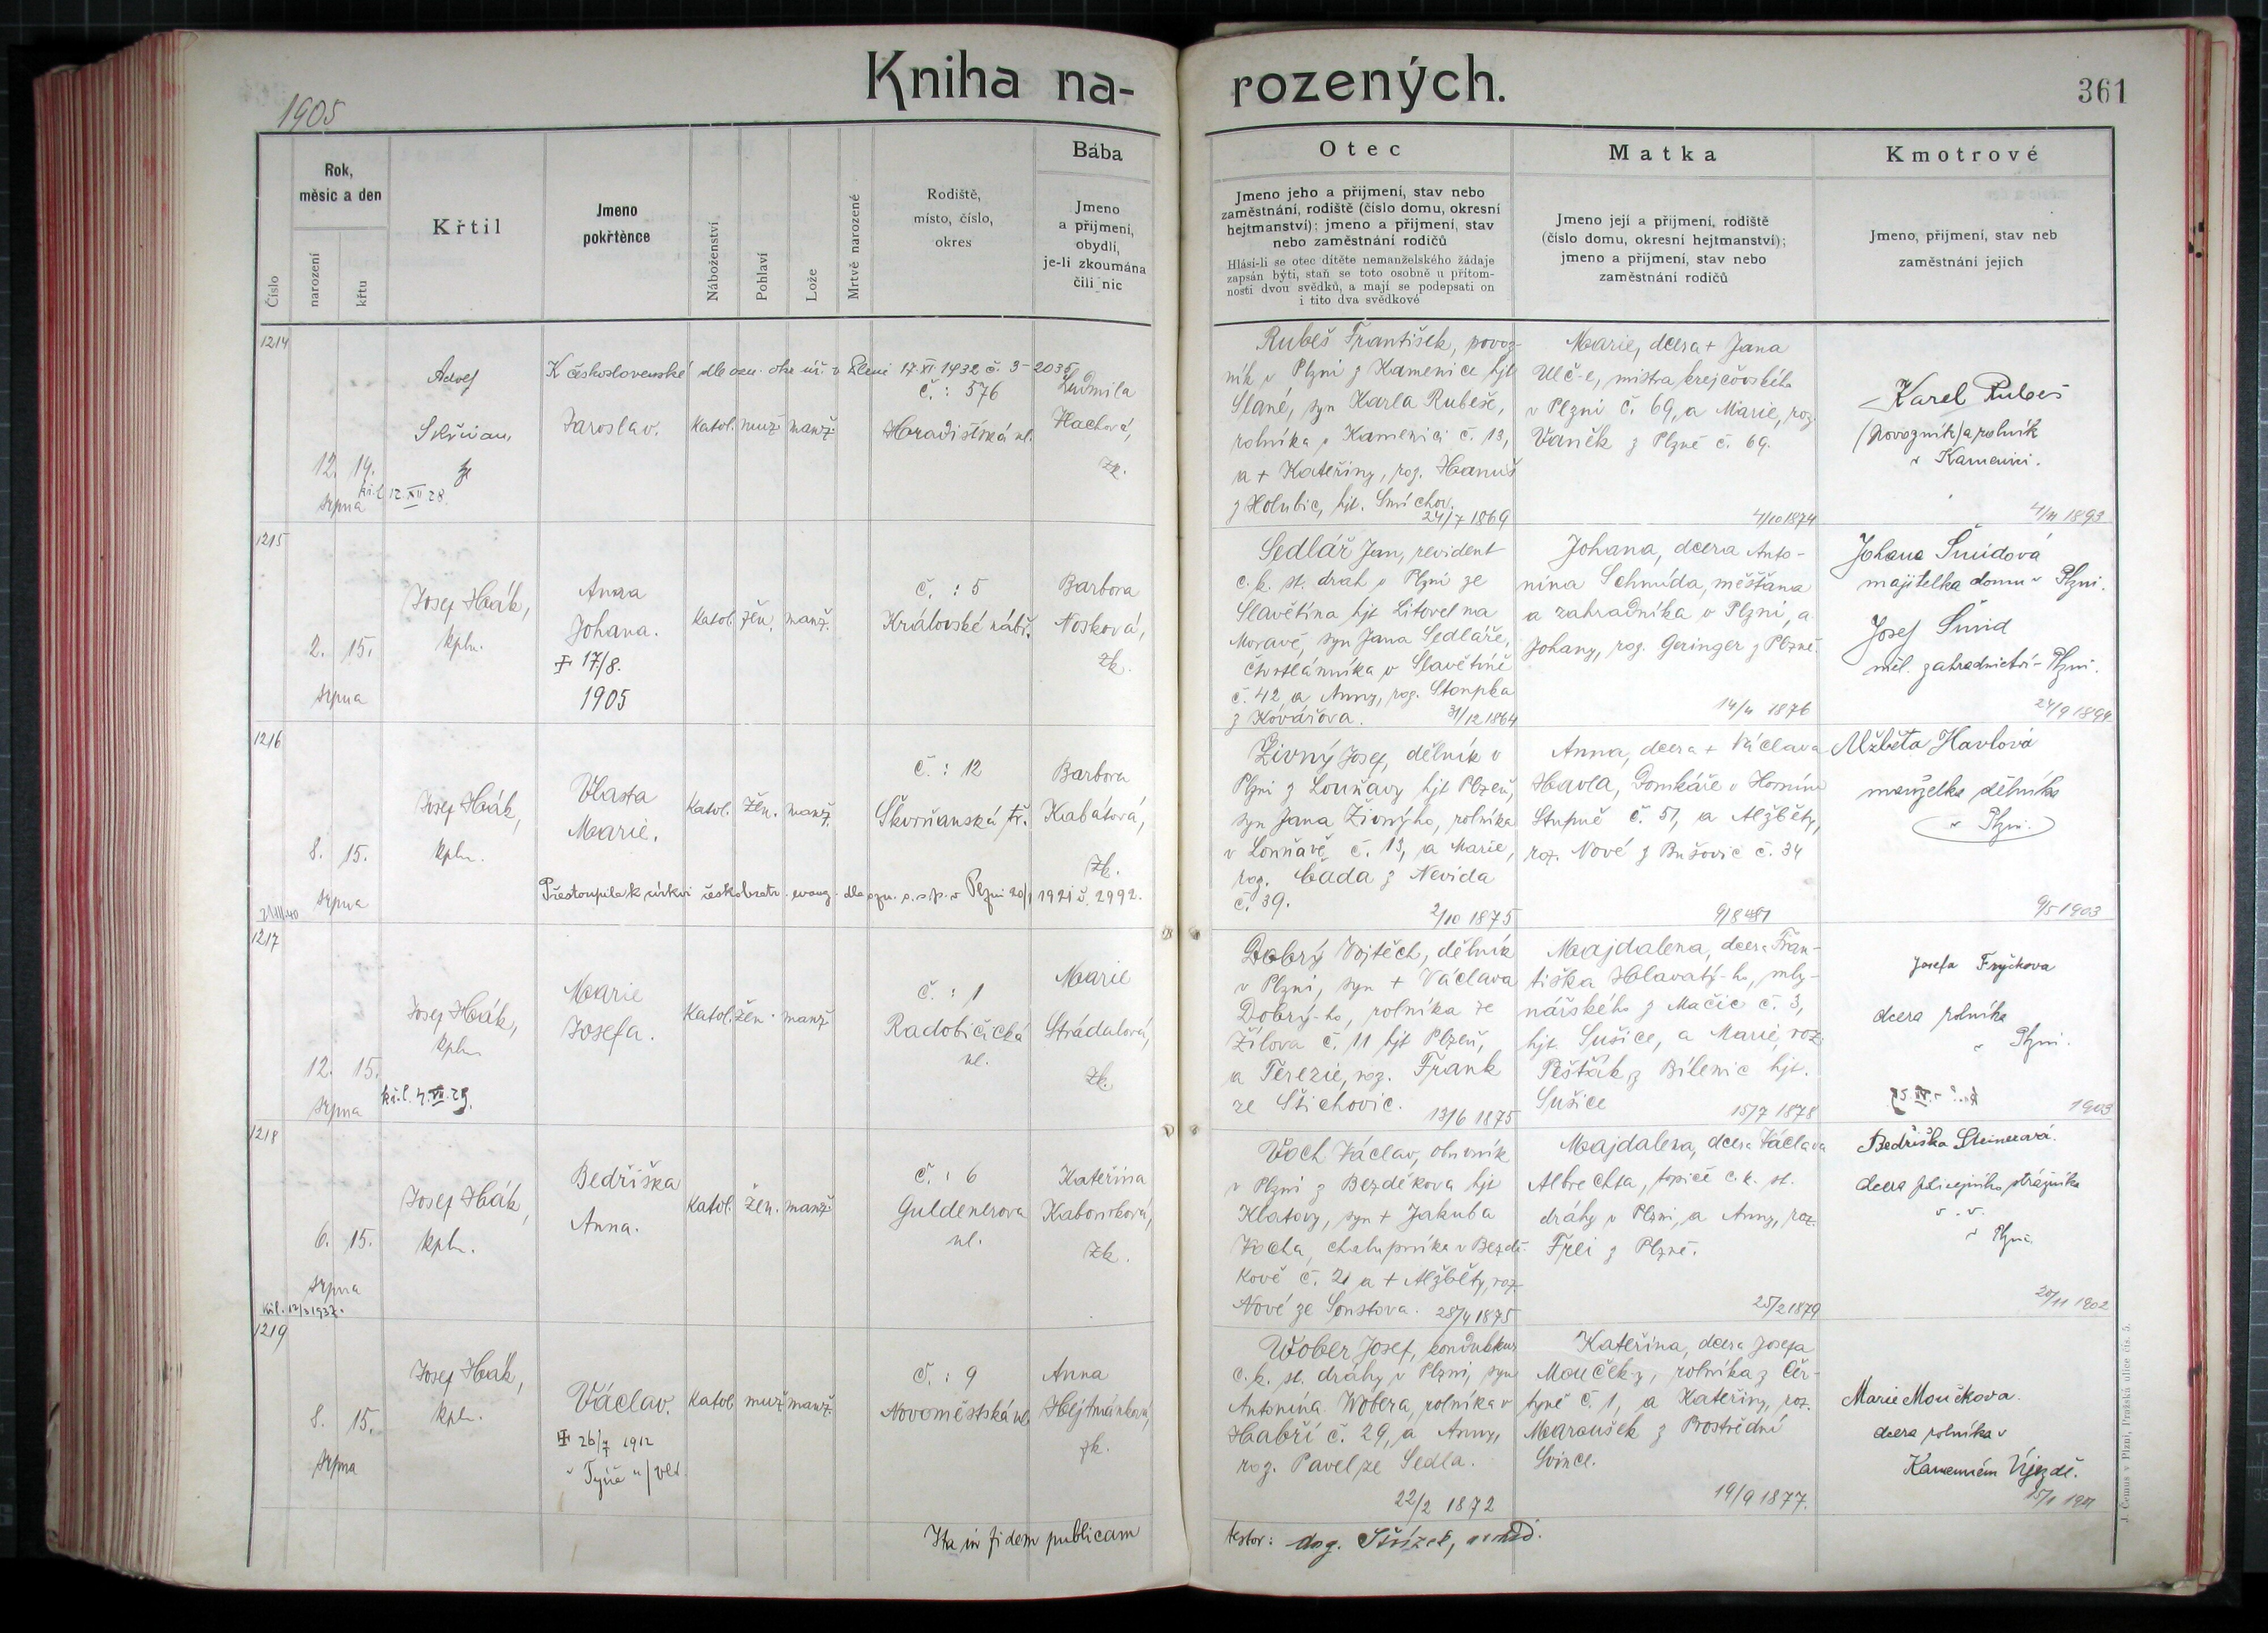 Kniha na-
rozených.
361
1905
Číslo
Rok,
měsíc a den
narození
křtu
Křtil
Jmeno
pokřtěnce
Náboženství
Pohlaví
Lože
Mrtvě narozené
Rodiště,
místo, číslo,
okres
Bába
Jmeno
a přijmení,
obydlí,
je-li zkoumána
čili nic
Otec
Jmeno jeho a přijmení, stav nebo
zaměstnání, rodiště (číslo domu, okresní
hejtmanství); jmeno a přijmení, stav
nebo zaměstnání rodičů
Hlásí-li se otec dítěte nemanželského žádaje
zapsán býti, staň se toto osobně u přítom-
nosti dvou svědků, a mají se podepsati on
i tito dva svědkové
Matka
Jmeno její a přijmení, rodiště
(číslo domu, okresní hejtmanství);
jmeno a přijmení, stav nebo
zaměstnání rodičů
Kmotrové
Jmeno, přijmení, stav neb
zaměstnání jejich
1214
12. 14.
srpna
12.XII 28.
Adolf
K československé dle ozn. okr. úř. v Plzni 17.XI 1932 č. 3-
Jaroslav.
Katol. muž. manž.
č.: 576
Hradišťská ul.
Ludmila
Hachová,
zk.
Rubeš František, povoz-
ník v Plzni z Kamenice hjt
Slané, syn Karla Rubeše,
rolníka v Kamenici č. 13,
a + Kateřiny, roz. Hanuš
z Holubic, hjt. Smíchov.
24/7 1869
Marie, dcera + Jana
Ulč-e, mistra krejčovského
v Plzni č. 69, a Marie, roz.
Vaněk z Plzně č. 69.
4/10 1874
Karel Rubeš
(povozník) a rolník
v Kamenici.
4/11 1893
1215
2. 15.
srpna
Josef Hák,
kpln.
Anna
Johana.
17/8.
1905
Katol. žen. manž.
č.: 5
Královské nábř.
Barbora
Nosková,
zk.
Sedlář Jan, revident
c. k. st. drah v Plzni ze
Slavětína hjt Litovel na
Moravě, syn Jana Sedláře,
čtvrtlánníka v Slavětíně
č. 42 a Anny, roz. Stoupka
z Kovářova. 31/12 1864
Johana, dcera Anto-
nína Schmída, měšťana
a zahradníka v Plzni, a
Johany, roz. Geringer z Plzně.
14/4 1876
Johana Šmídová
majitelka domu v Plzni.
Josef Šmíd
měl. zahradnictví - Plzni.
24/9 1894
1216
8. 15.
srpna
Josef Hák,
kpln.
Vlasta
Marie.
Katol. žen. manž.
č.: 12
Škvrňanská tř.
Barbora
Kabátová,
zk.
Přestoupila k církvi českobratr. evang. dle ozn. o. s. p. v Plzni 20/1 1921 č. 2992.
Živný Josef, dělník v
Plzni z Louňavy hjt Plzeň,
syn Jana Živnýho, rolníka
v Louňavě č. 13, a Marie,
roz. Čada z Nevida
č. 39.
2/10 1875
Anna, dcera + Václava
Havla, domkáře v Horním
Stupně č. 51, a Alžběty,
roz. Nové z Bušovic č. 34
9/8 1881
Alžběta Havlová
manželka dělníka
v Plzni.
9/5 1903
1217
12. 15.
srpna
Josef Hák,
kpln.
Marie
Josefa.
Katol. žen. manž.
č.: 1
Radobičická
ul.
Marie
Strádalová,
zk.
Dobrý Vojtěch, dělník
v Plzni, syn + Václava
Dobrý-ho, rolníka ze
Žilova č. 11 hjt Plzeň,
a Terezie, roz. Frank
ze Stichovic. 13/6 1875
Majdalena, dcera Fran-
tiška Hlavatý-ho, mly-
nářského z Mačic č. 3,
hjt. Sušice, a Marie, roz.
Pešták z Bílenic hjt.
Sušice 15/7 1878
Josefa Fryčkova
dcera rolníka
v Plzni.
1903
1218
6. 15.
srpna
12/3 1937.
Josef Hák,
kpln.
Bedřiška
Anna.
Katol. žen. manž.
č.: 6
Guldenerova
ul.
Kateřina
zk.
Voch Václav, obuvník
v Plzni z Bezděkova hjt
Klatovy, syn + Jakuba
Vocha, chalupníka v Bezdě-
kově č. 21 a + Alžběty, roz.
Nové ze Soustova. 28/4 1875
Majdalena, dcera Václava
Albrechta, topiče c. k. st.
dráhy v Plzni, a Anny, roz.
Frei z Plzně.
25/2 1879
Bedřiška Steinerová.
dcera policejního strážníka
v. v.
v Plzni.
20/11 1902
1219
8. 15.
srpna
Josef Hák,
kpln.
Václav.
26/7 1912
v Týně n/vlt.
Katol. muž. manž.
č.: 9
Novoměstská ul.
Anna
Hejtmánková,
zk.
Wober Josef, konduktur
c. k. st. dráhy v Plzni, syn
Antonína Wobera, rolníka v
Habří č. 29, a Anny,
roz. Pavel ze Sedla.
22/2 1872
Kateřina, dcera Josefa
Mouček-y, rolníka z Čer-
týně č. 1, a Kateřiny, roz.
Maroušek z Prostřední
Svince.
19/9 1877.
Marie Moučkova.
dcera rolníka v
Kamenném Újezdě.
Ita in fidem publicam
testor:
J. Černus v Plzni, Pražská ulice čís. 5.